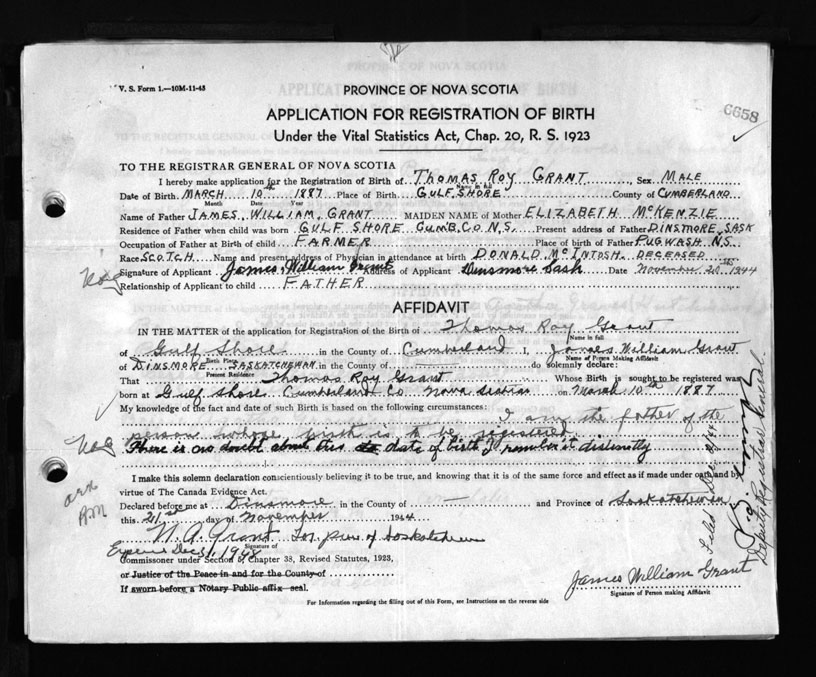 V. S. Form 1.—10M-11-43
PROVINCE OF NOVA SCOTIA
APPLICATION FOR REGISTRATION OF BIRTH
Under the Vital Statistics Act, Chap. 20, R. S. 1923
C658
TO THE REGISTRAR GENERAL OF NOVA SCOTIA
I hereby make application for the Registration of Birth of THOMAS ROY GRANT Sex MALE
Name in full
Date of Birth MARCH 10th 1887 Place of Birth GULF SHORE County of CUMBERLAND
Month Date Year
Name of Father JAMES WILLIAM GRANT MAIDEN NAME of Mother ELIZABETH McKENZIE
Residence of Father when child was born GULF SHORE CUMB. CO. N.S. Present address of Father DINSMORE, SASK
Occupation of Father at Birth of child FARMER Place of birth of Father PUGWASH N.S.
Race SCOTCH Name and present address of Physician in attendance at birth DONALD McINTOSH. DECEASED
Signature of Applicant James William Grant Address of Applicant Dinsmore Sask Date November 20 1944
Relationship of Applicant to child FATHER
AFFIDAVIT
IN THE MATTER of the application for Registration of the Birth of Thomas Roy Grant
Name in full
of Gulf Shore in the County of Cumberland I, James William Grant
Birth Place Name of Person Making Affidavit
of DINSMORE SASKATCHEWAN in the County of — do solemnly declare:
Present Residence
That Thomas Roy Grant Whose Birth is sought to be registered was
born at Gulf Shore Cumberland Co Nova Scotia on March 10th 1887
My knowledge of the fact and date of such Birth is based on the following circumstances:
I am the father of the
person whose birth is to be registered
There is no doubt about this date of birth I remember it distinctly
I make this solemn declaration conscientiously believing it to be true, and knowing that it is of the same force and effect as if made under oath and by
virtue of The Canada Evidence Act.
Declared before me at Dinsmore in the County of — and Province of Saskatchewan
this 21st day of November 1944
W. A. Grant
Signature of
Expires Dec 31, 1948
Commissioner under Section 5, Chapter 38, Revised Statutes, 1923,
or Justice of the Peace in and for the County of
If sworn before a Notary Public affix seal.
James William Grant
Signature of Person making Affidavit
For Information regarding the filling out of this Form, see Instructions on the reverse side
Deputy Registrar General